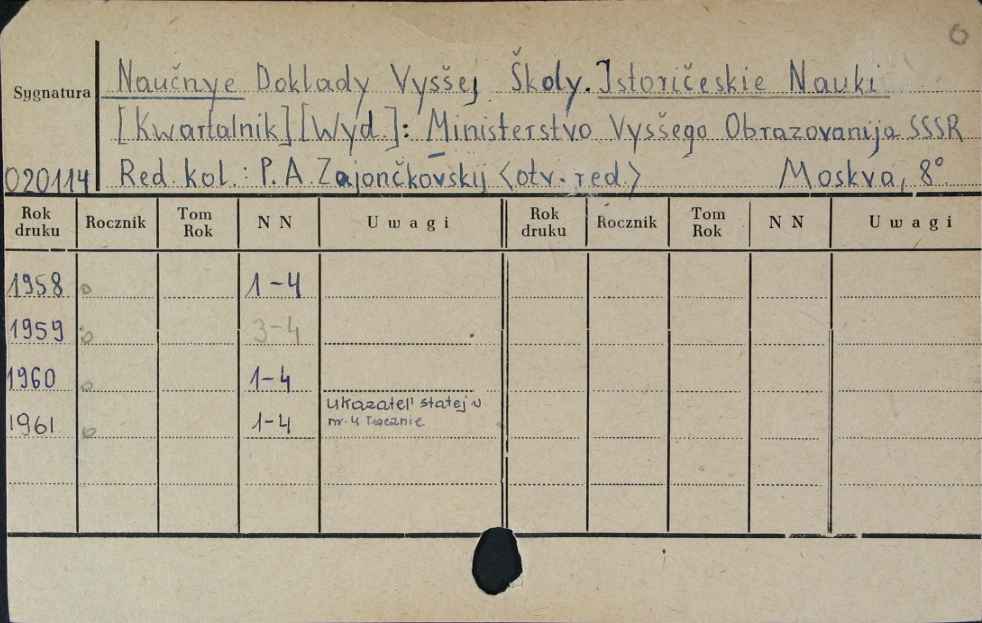 Naučnye Doklady Vysšej Školy. Istoričeskie Nauki
Sygnatura
[Kwartalnik] [Wyd.]: Ministerstvo Vysšego Obrazovanija SSSR
020114 Red. kol.: P. A. Zajončkovskij <otv. red.> Moskva, 8°
Rok druku Rocznik Tom Rok N N Uwagi Rok druku Rocznik Tom Rok N N Uwagi
1958 1-4
1959 3-4
1960 1-4
1961 1-4 ukazatel' statej v
nr. 4